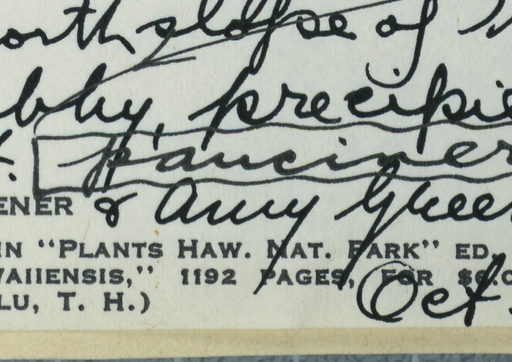 north slope of
precipi
pauciner
ENER & Amy Green
IN "PLANTS HAW. NAT. PARK" ED.
VAIIENSIS," 1192 PAGES, FOR $6.0
LU, T. H.) Oct.